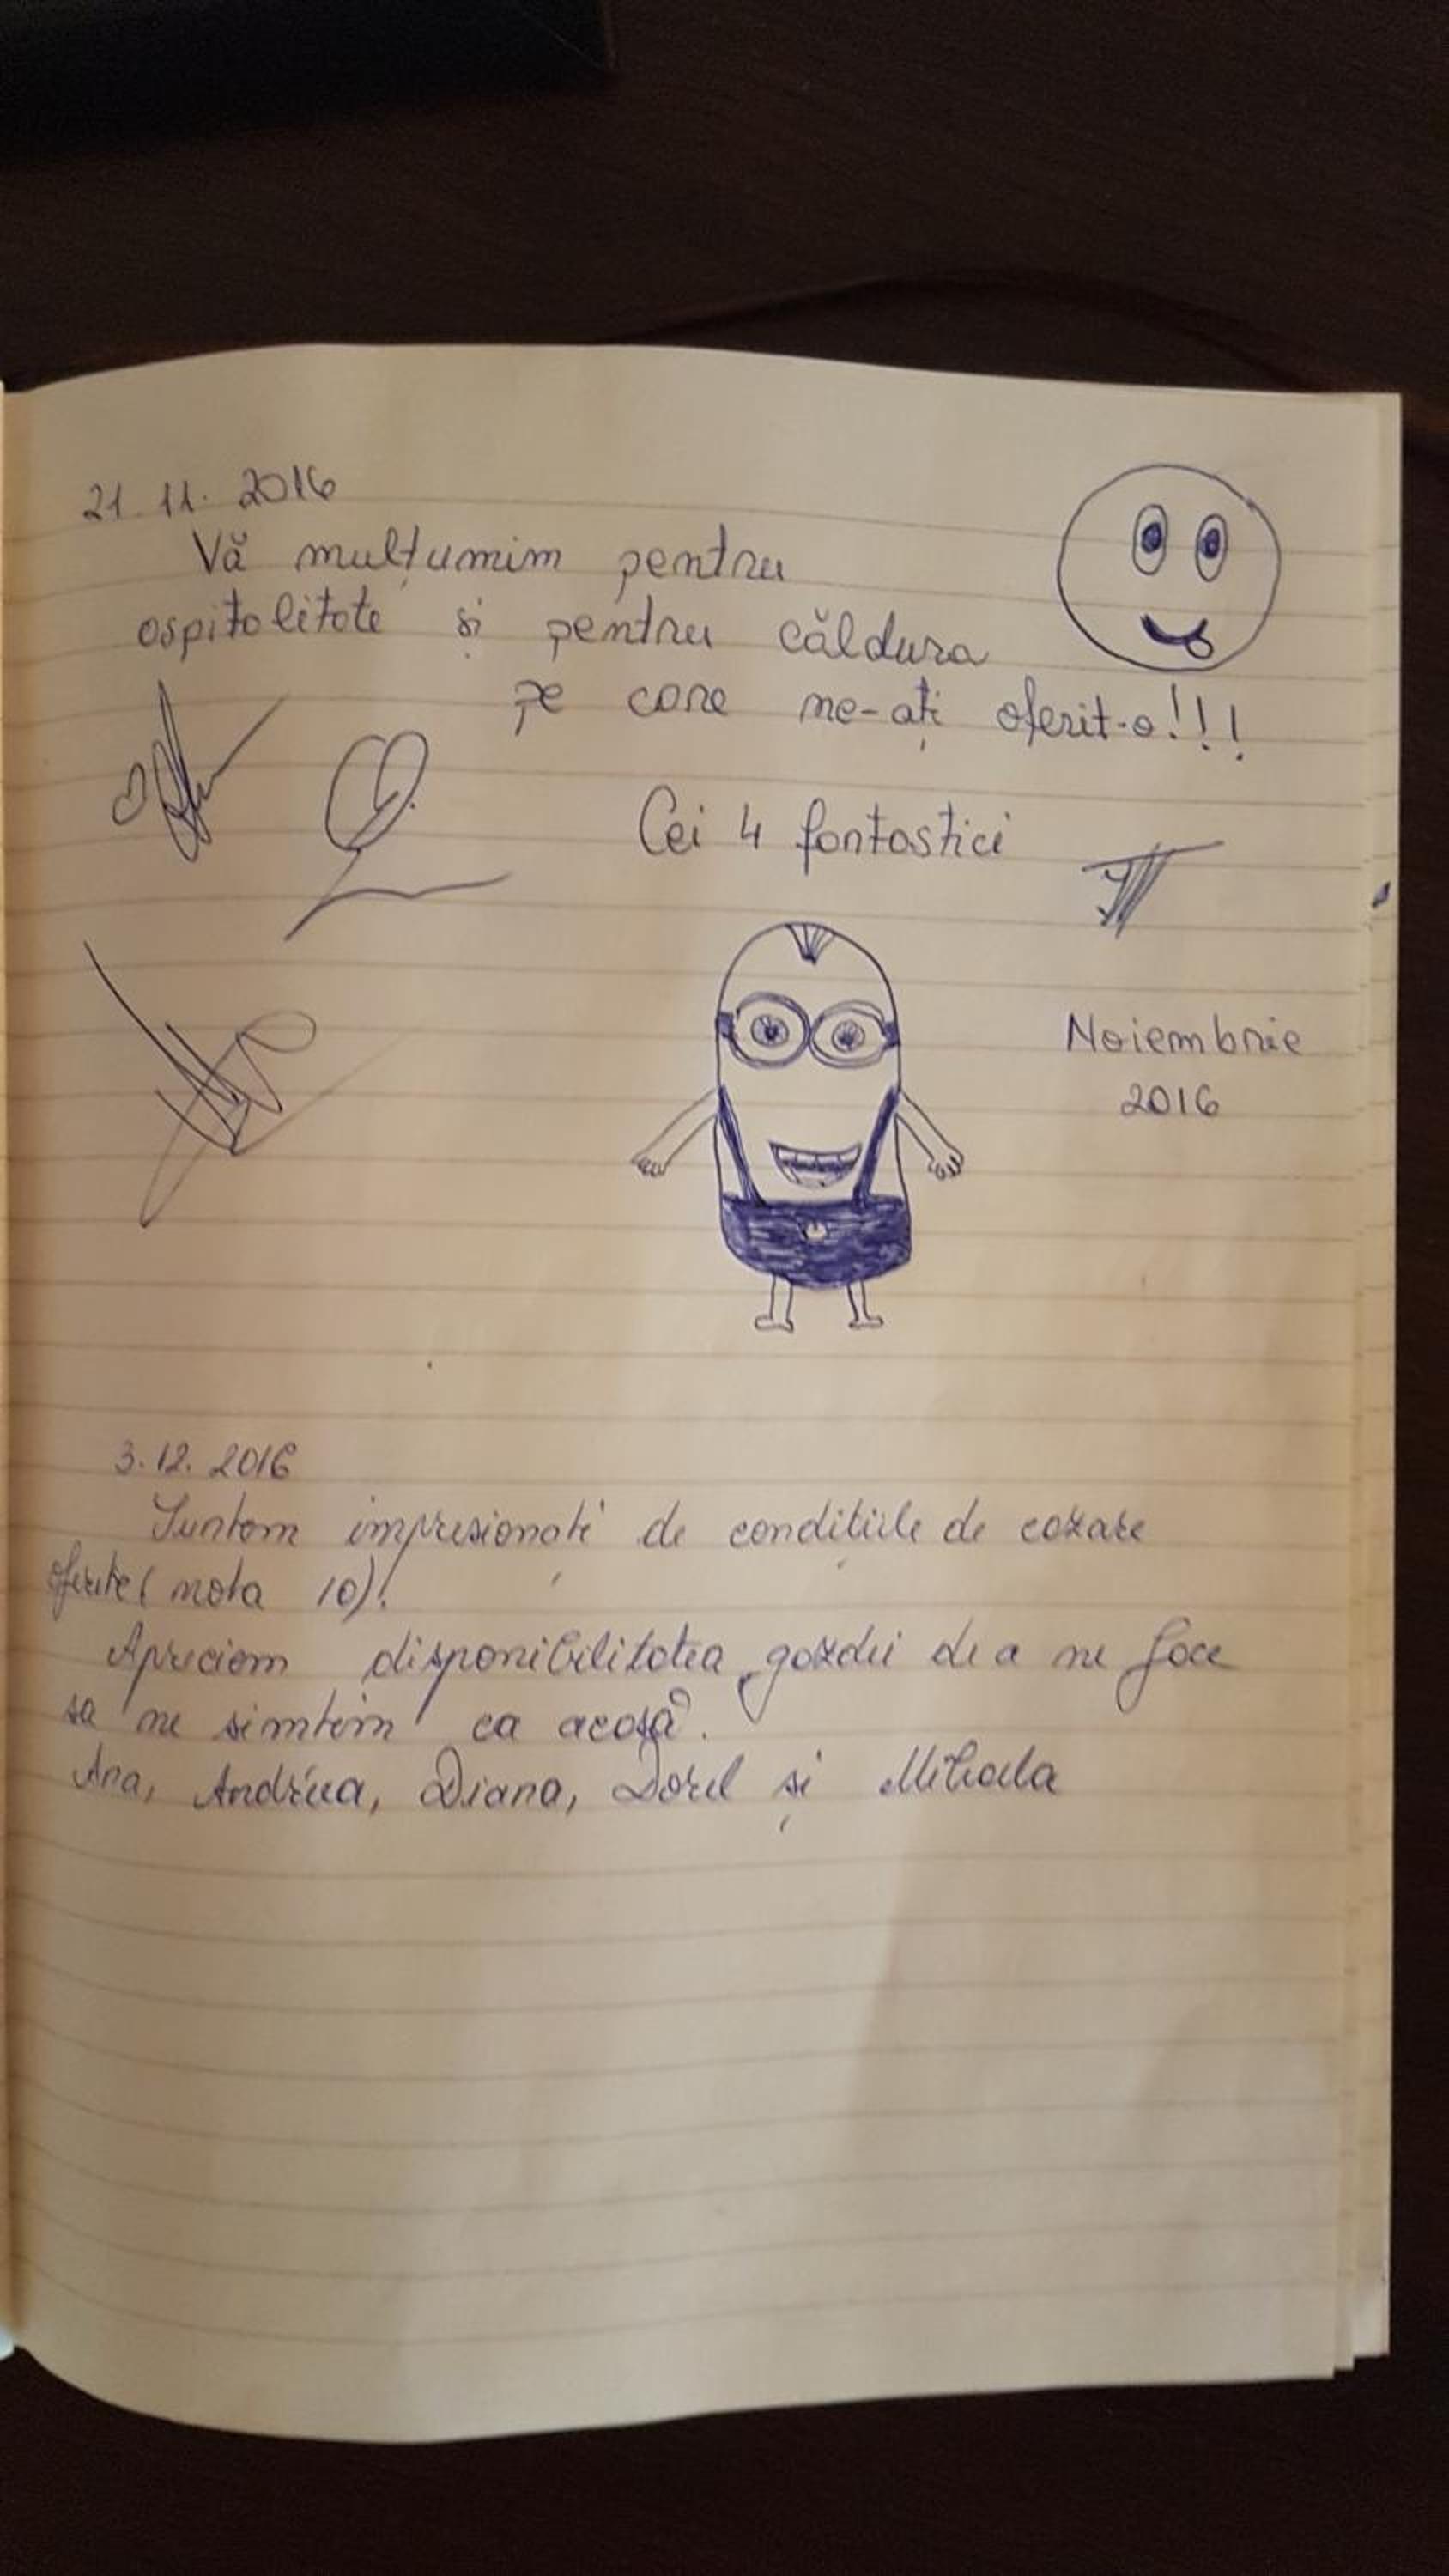 21.11.2016
Vă mulțumim pentru
ospitalitate și pentru căldura
pe care ne-ați oferit-o!!!
Cei 4 fantastici
Noiembrie
2016
3.12.2016
Suntem impresionați de condițiile de cazare
oferite (nota 10)!
Apreciem disponibilitatea gazdei de a ne face
sa ne simtem ca acasă.
Ana, Andreea, Diana, Dorel și Mihaela